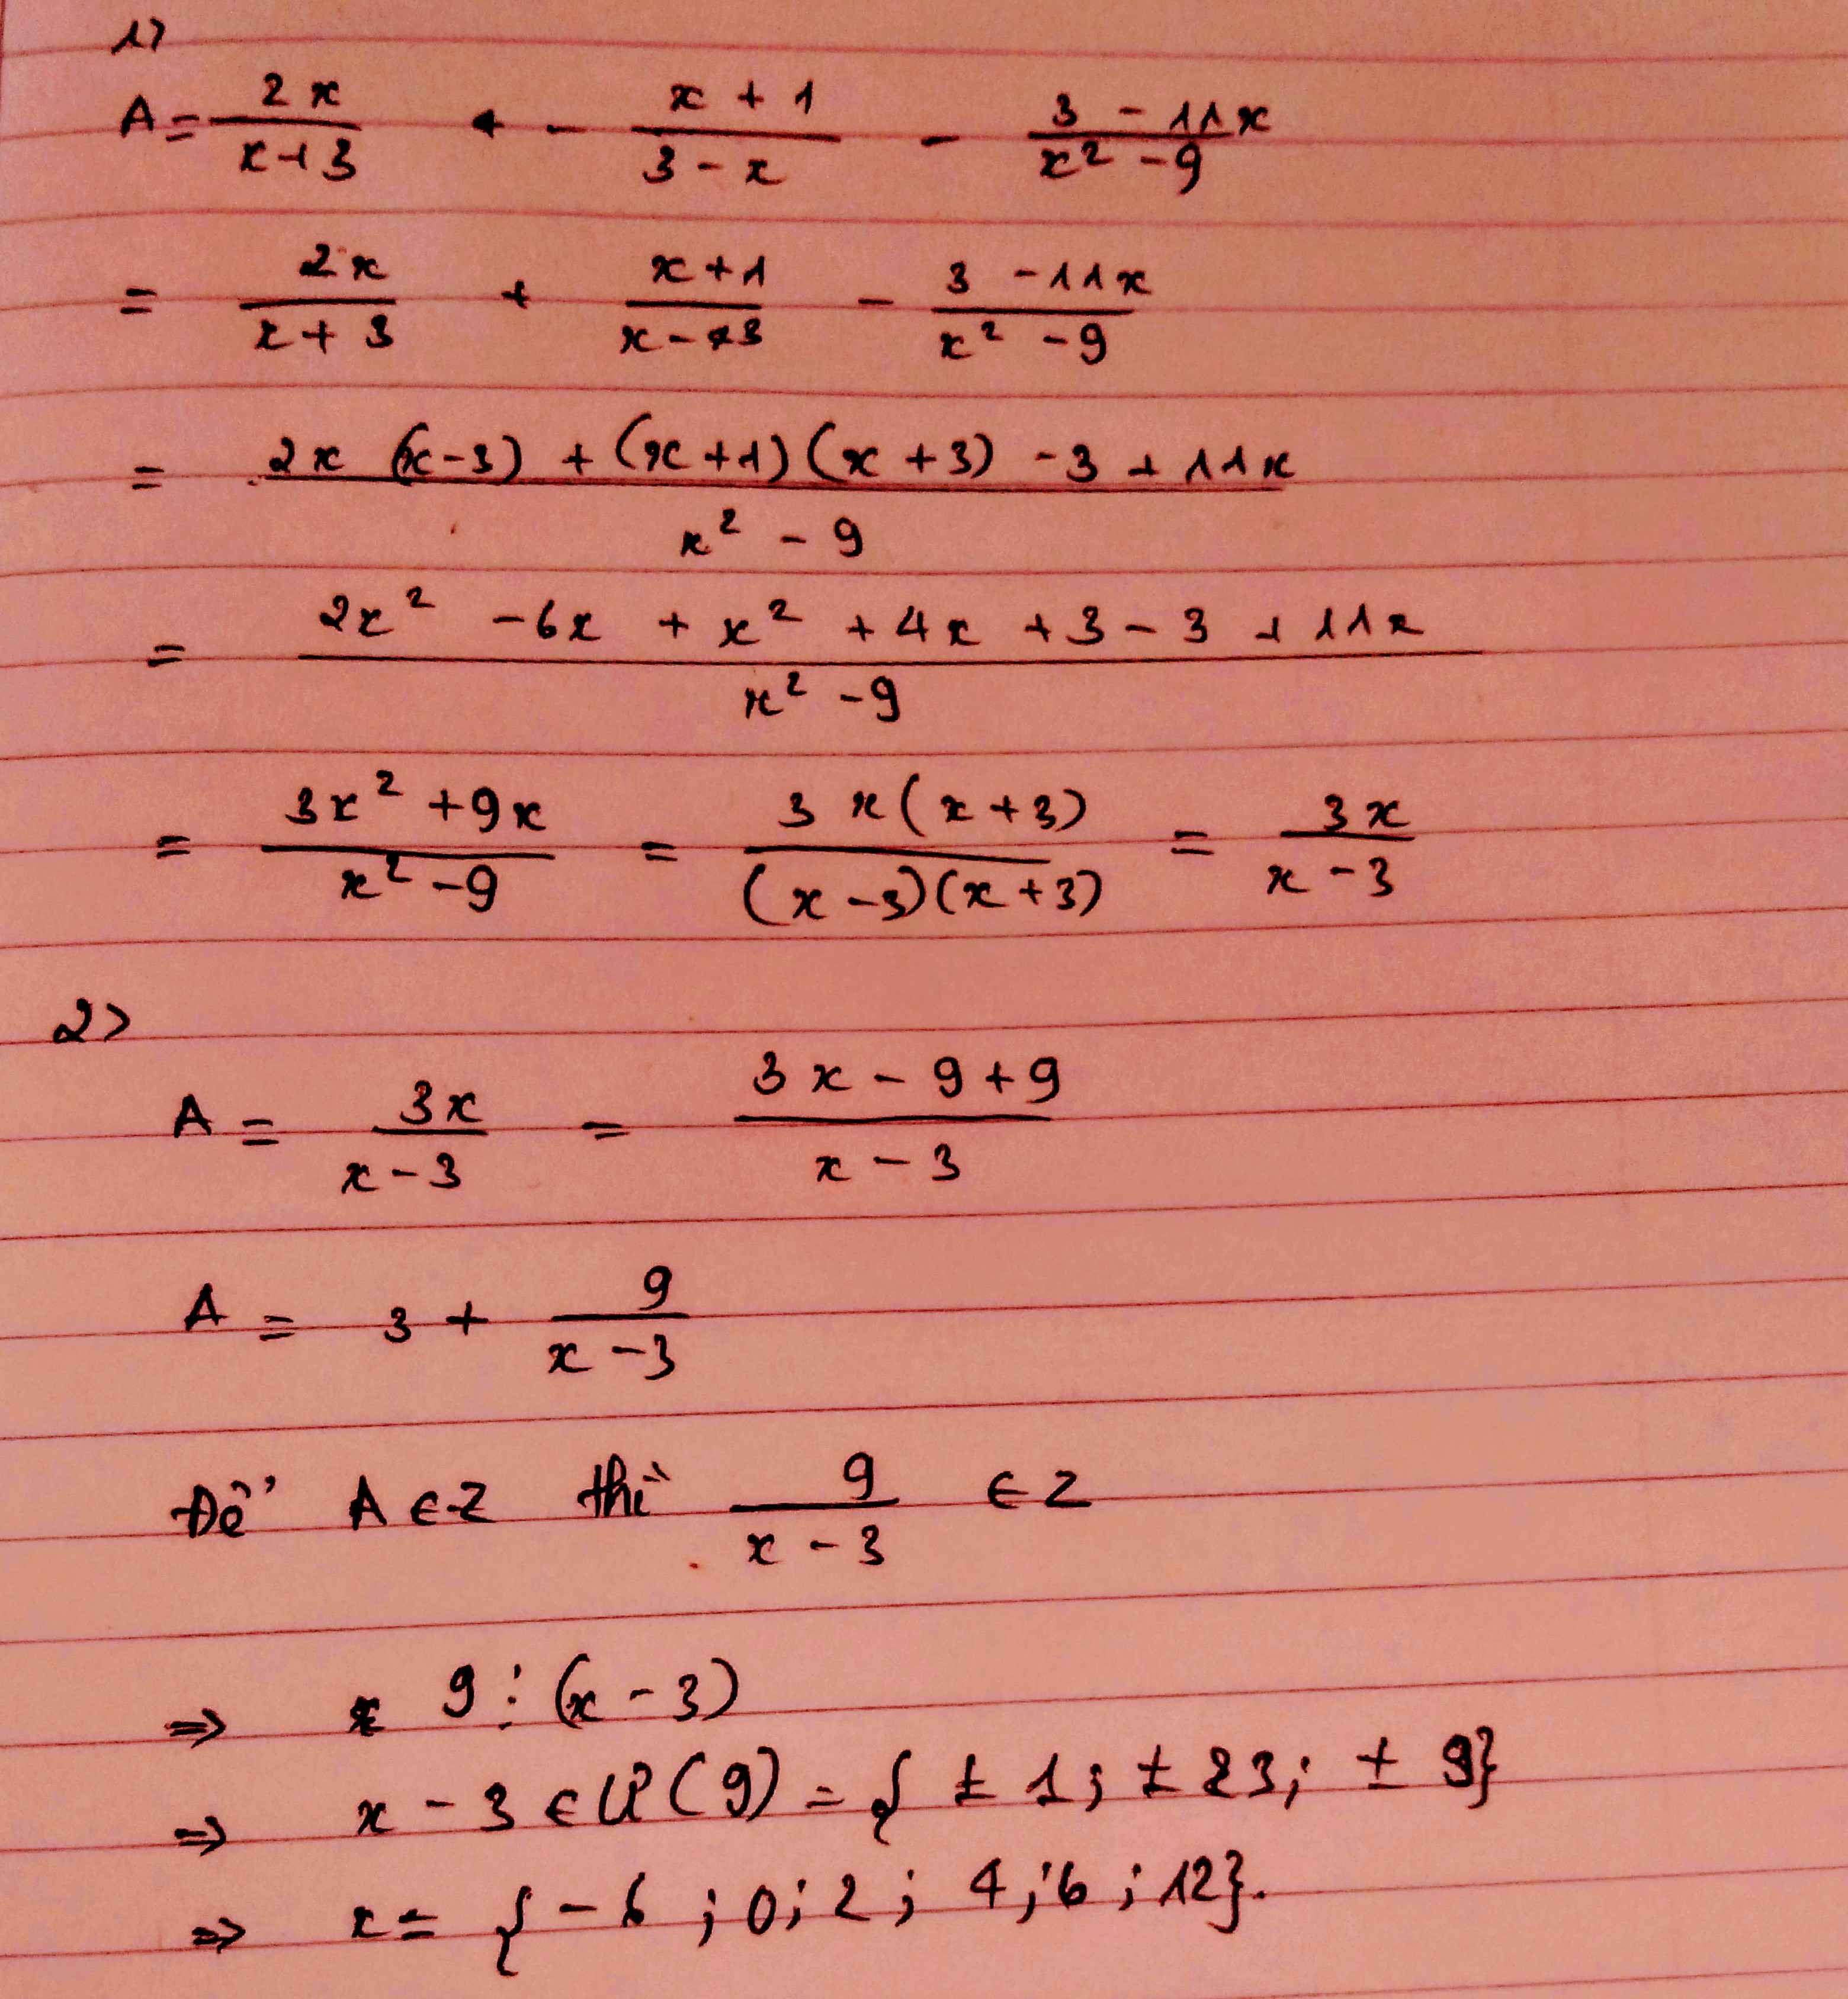 1>
A = \frac{2x}{x+3} - \frac{x+1}{3-x} - \frac{3-11x}{x^2-9}
= \frac{2x}{x+3} + \frac{x+1}{x-3} - \frac{3-11x}{x^2-9}
= \frac{2x(x-3)+(x+1)(x+3)-3+11x}{x^2-9}
= \frac{2x^2-6x+x^2+4x+3-3+11x}{x^2-9}
= \frac{3x^2+9x}{x^2-9} = \frac{3x(x+3)}{(x-3)(x+3)} = \frac{3x}{x-3}
2>
A = \frac{3x}{x-3} = \frac{3x-9+9}{x-3}
A = 3 + \frac{9}{x-3}
Để A ∈ Z thì \frac{9}{x-3} ∈ Z
⇒ 9 ⋮ (x-3)
⇒ x-3 ∈ Ư(9) = {±1; ±3; ±9}
⇒ x = {-6; 0; 2; 4; 6; 12}.